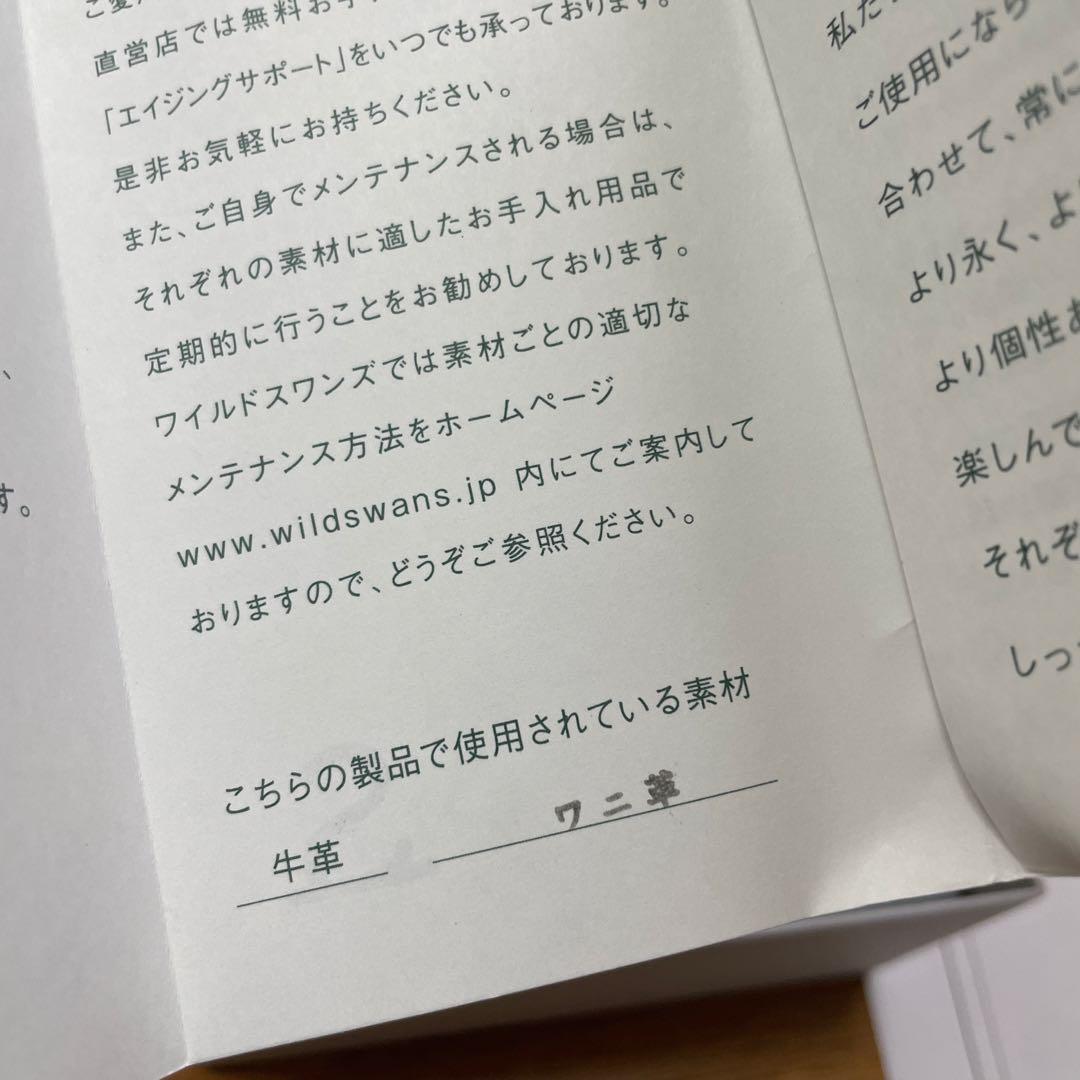 直営店では無料お手
「エイジングサポート」をいつでも承っております。
是非お気軽にお持ちください。
また、ご自身でメンテナンスされる場合は、
それぞれの素材に適したお手入れ用品で
定期的に行うことをお勧めしております。
ワイルドスワンズでは素材ごとの適切な
メンテナンス方法をホームページ
www.wildswans.jp 内にてご案内して
おりますので、どうぞご参照ください。
こちらの製品で使用されている素材
牛革 ワニ革
す。
私た
ご使用になら
合わせて、常に
より永く、よ
より個性あ
楽しんで
それぞ
しっ